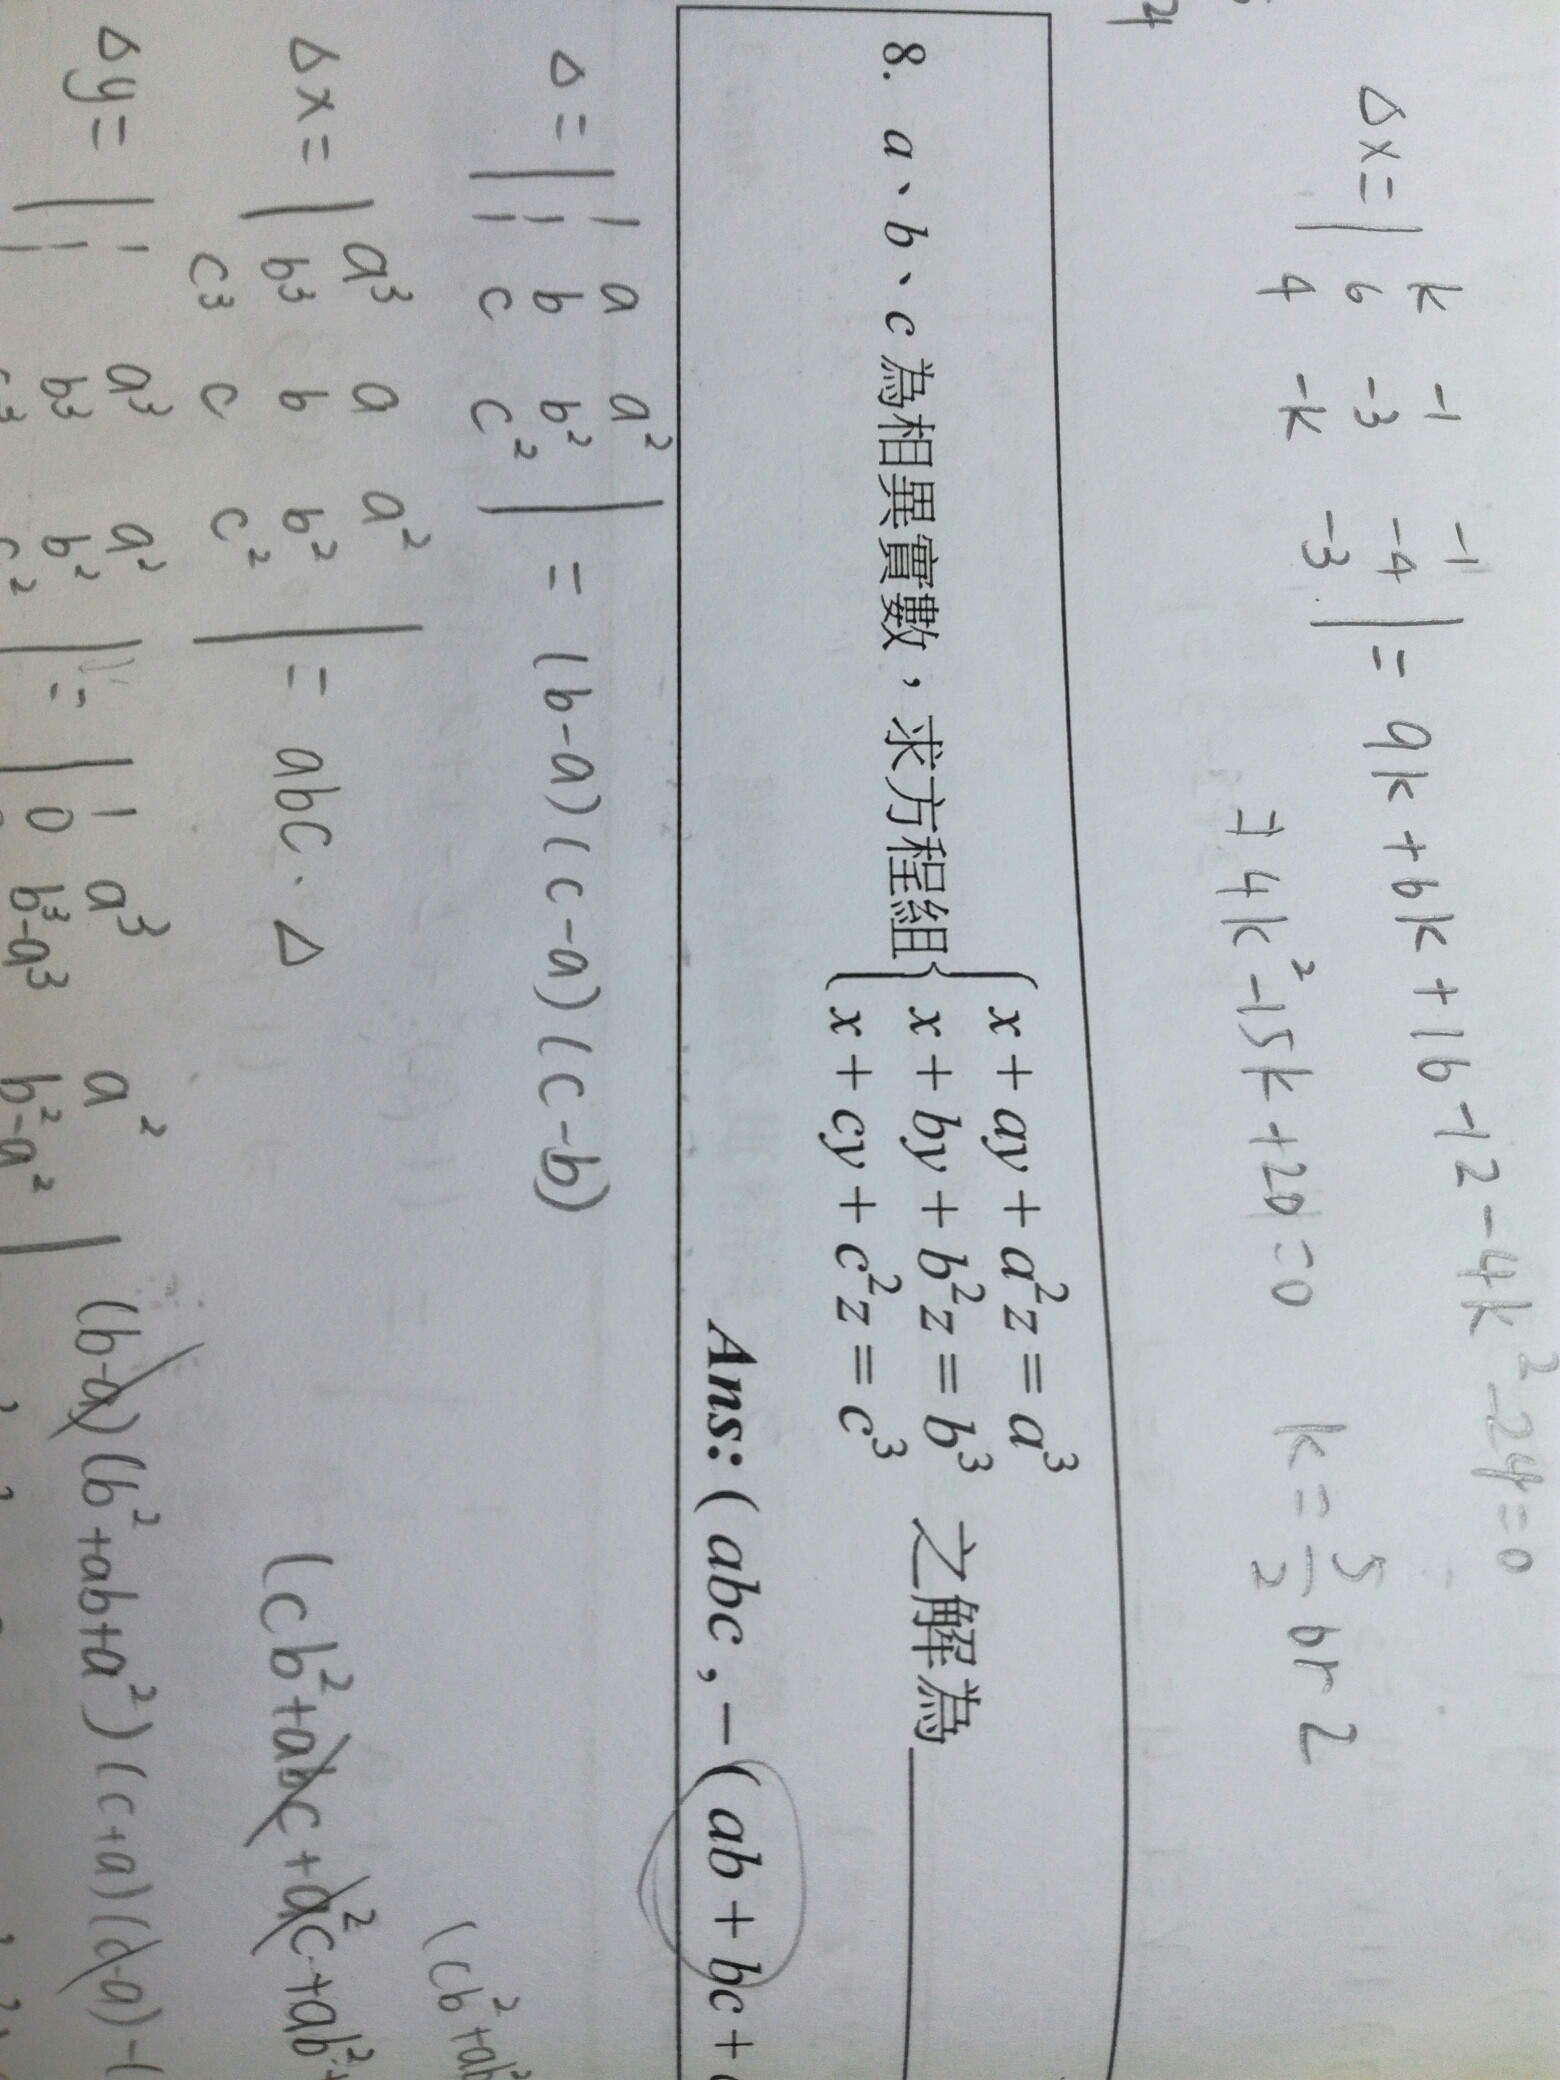 Δx = | k -1 -1
6 -3 -4
4 -k -3 | = 9k + 6k + 16 - 12 - 4k² - 24 = 0
⇒ 4k² - 15k + 20 = 0 k = 5/2 or 2
8. a、b、c 為相異實數，求方程組 { x + ay + a²z = a³
x + by + b²z = b³ 之解為
x + cy + c²z = c³
Ans: ( abc , − ( ab + bc +
Δ = | 1 a a²
1 b b²
1 c c² | = (b-a)(c-a)(c-b)
(cb²+ab²
Δx = | a³ a a²
b³ b b²
c³ c c² | = abc · Δ (cb²+abc+ac²+ab²+
Δy = | 1 a³ a²
1 b³ b²
1 c³ c² | = | 1 a³ a²
0 b³-a³ b²-a² | (b-a)(b²+ab+a²)(c+a)(c-a)-(